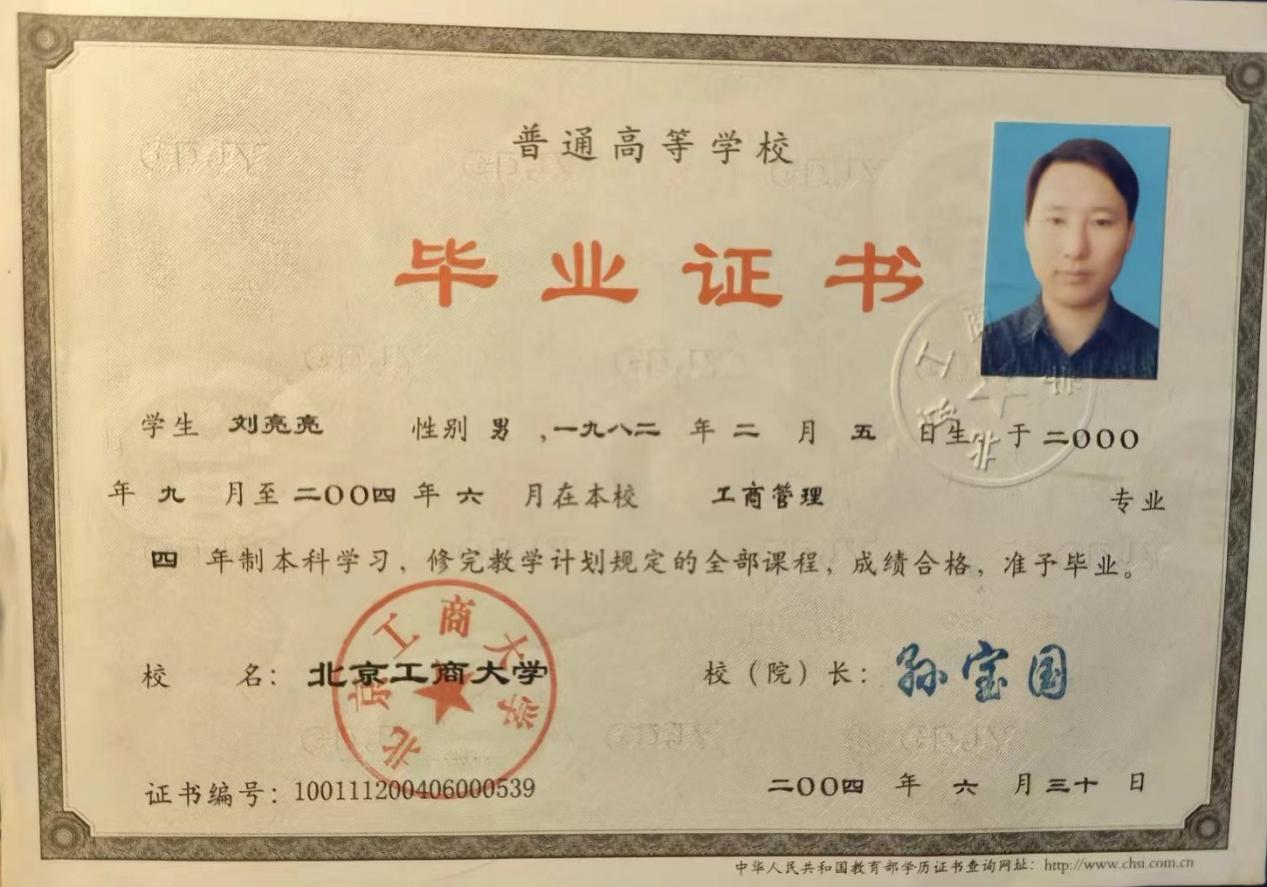 普通高等学校
毕业证书
学生 刘亮亮 性别 男 ,一九八二 年 二 月 五 日生 于 二〇〇〇
年 九 月至 二〇〇四 年 六 月在本校 工商管理 专业
四 年制本科学习，修完教学计划规定的全部课程，成绩合格，准予毕业。
校 名：北京工商大学
校（院）长：孙宝国
北京工商大学
证书编号：100111200406000539
二〇〇四 年 六 月 三十 日
中华人民共和国教育部学历证书查询网址：http://www.chsi.com.cn